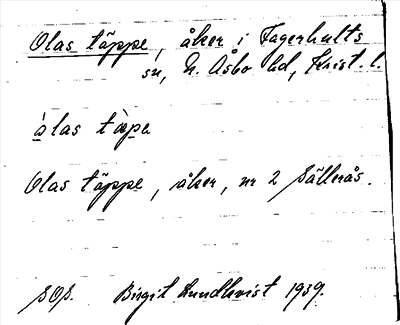 Olas täppe, åker i Fagerhults
sn, N. Åsbo hd, Krist. l.
òlas tæ̀pe
Olas täppe, åker, nr 2 Källerås.
SOS. Birgit Lundkvist 1939.